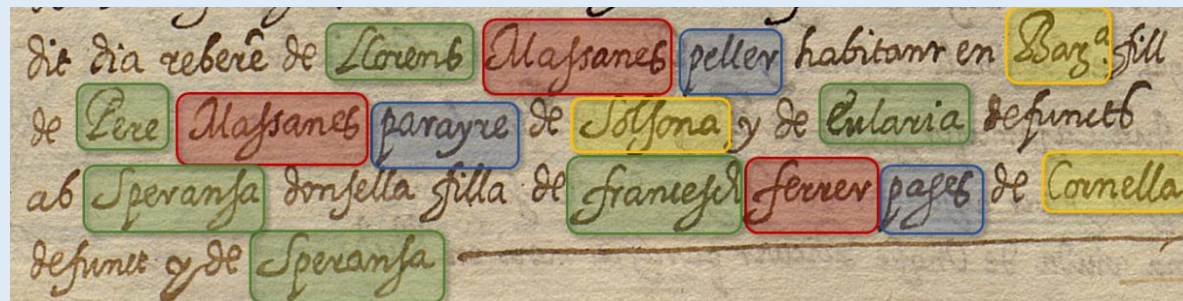 dit dia rebere de Llorens Massanes peller habitant en Barª. fill
de Pere Massanes parayre de Solsona y de Eularia defuncts
ab Speransa donsella filla de francesch ferrer pages de Cornella
defunct y de Speransa